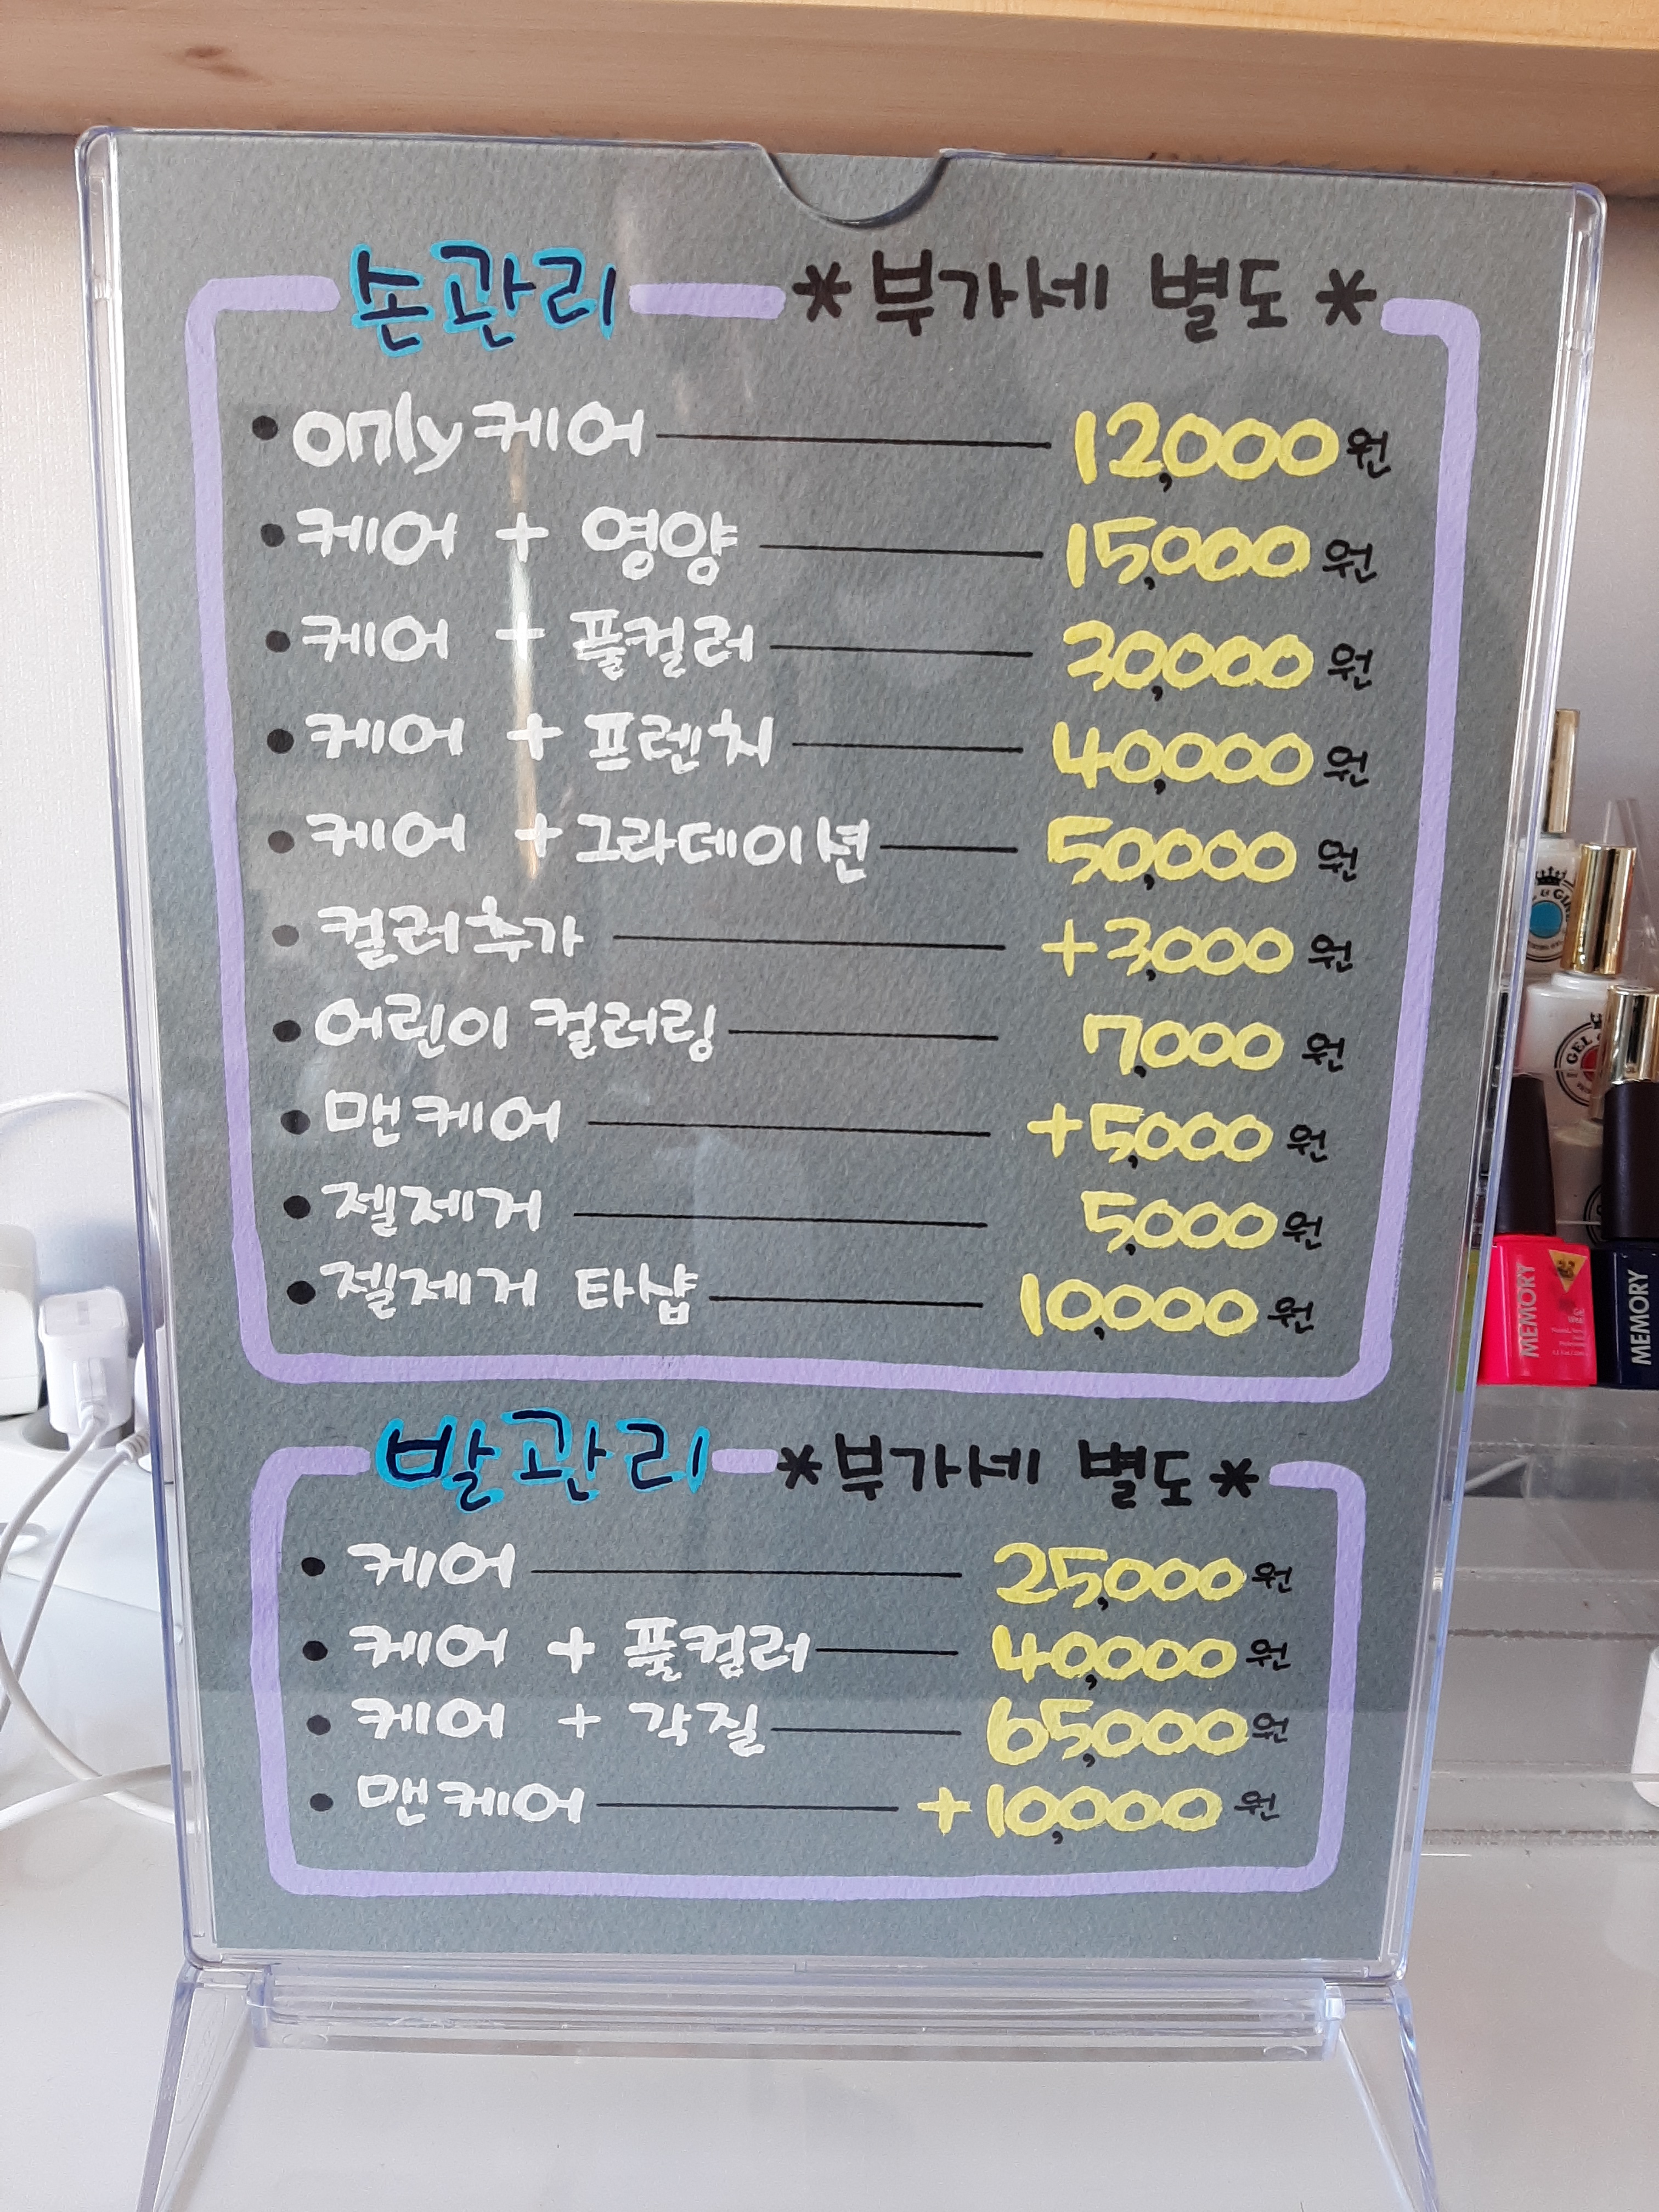 손관리 *부가세 별도*
• only케어 12,000원
• 케어 + 영양 15,000원
• 케어 + 풀컬러 30,000원
• 케어 + 프렌치 40,000원
• 케어 + 그라데이션 50,000원
• 컬러추가 +3,000원
• 어린이 컬러링 7,000원
• 맨케어 +5,000원
• 젤제거 5,000원
• 젤제거 타샵 10,000원
발관리 *부가세 별도*
• 케어 25,000원
• 케어 + 풀컬러 40,000원
• 케어 + 각질 65,000원
• 맨케어 +10,000원
GEL
MEMORY
MEMORY